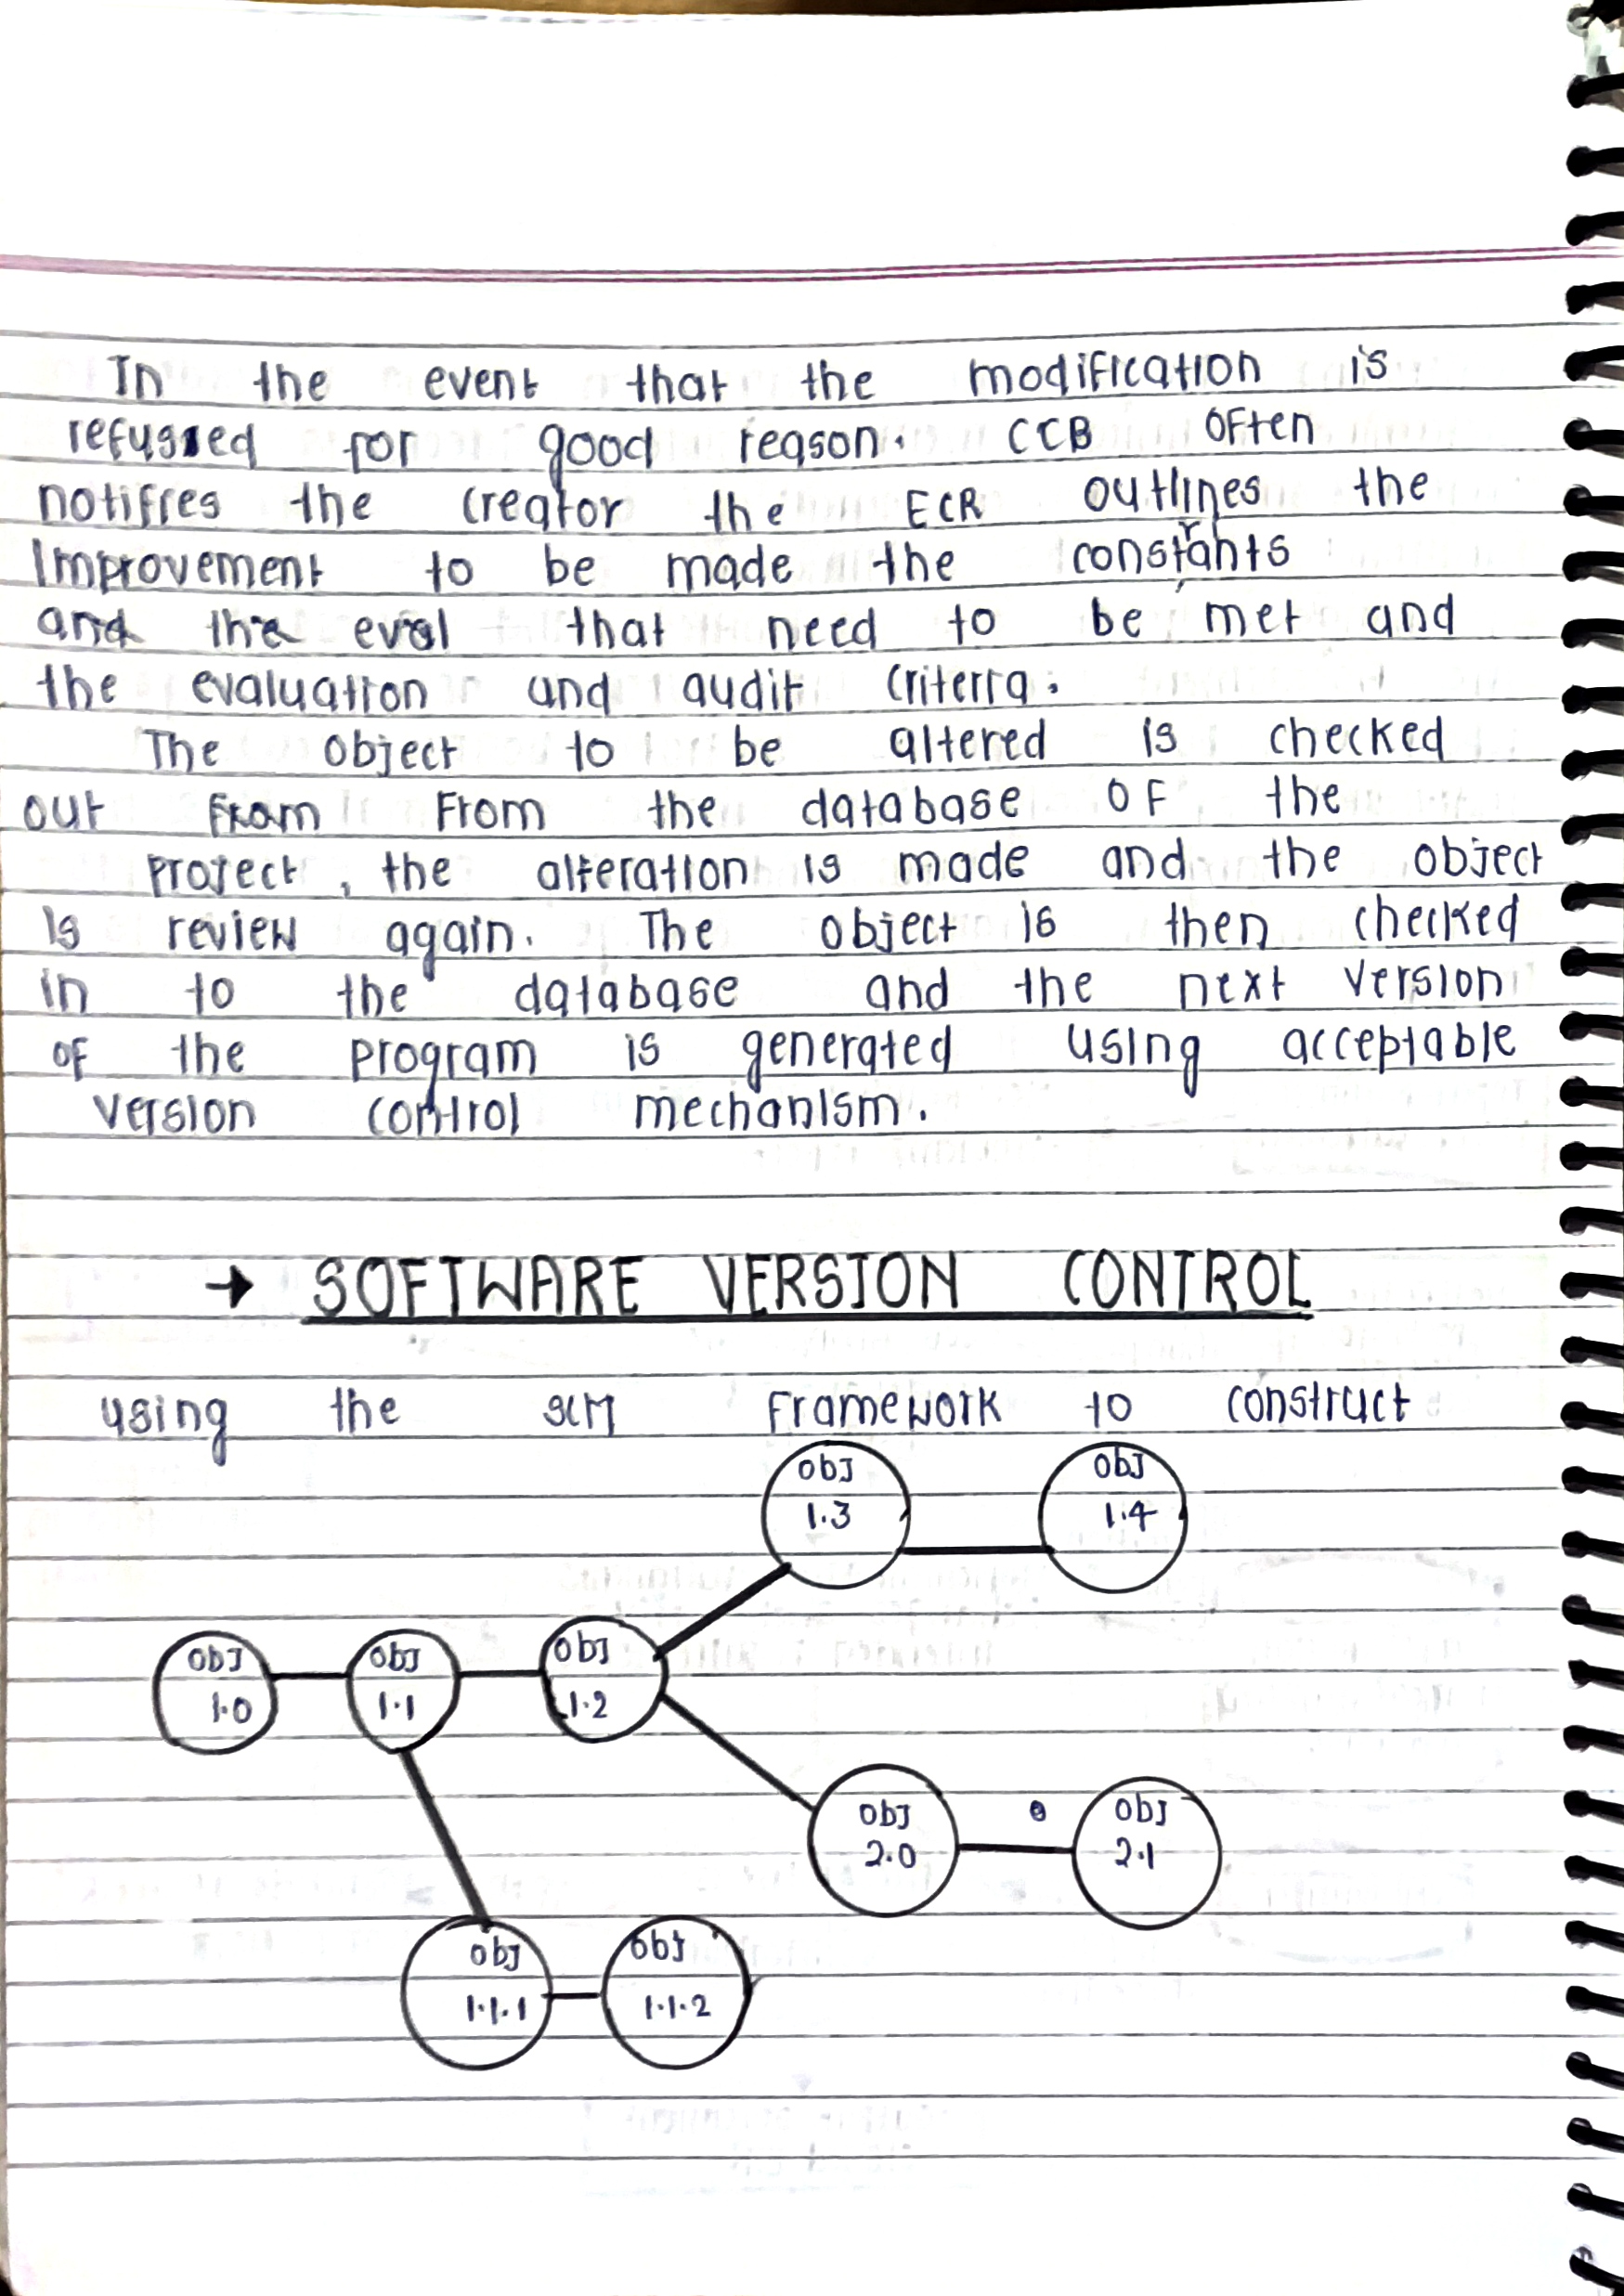 In the event that the modification is
refussed for good reason. CCB often
notifies the creator the ECR outlines the
Improvement to be made the constrants
and the eval that need to be met and
the evaluation and audit criteria.
The object to be altered is checked
out from From the database OF the
project, the alteration is made and the object
is review again. The object is then checked
in to the database and the next version
of the program is generated using acceptable
version control mechanism.
→ SOFTWARE VERSION CONTROL
using the SCM Framework to construct
obj 1.3 obj 1.4
obj 1.0 obj 1.1 obj 1.2
obj 2.0 obj 2.1
obj 1.1.1 obj 1.1.2